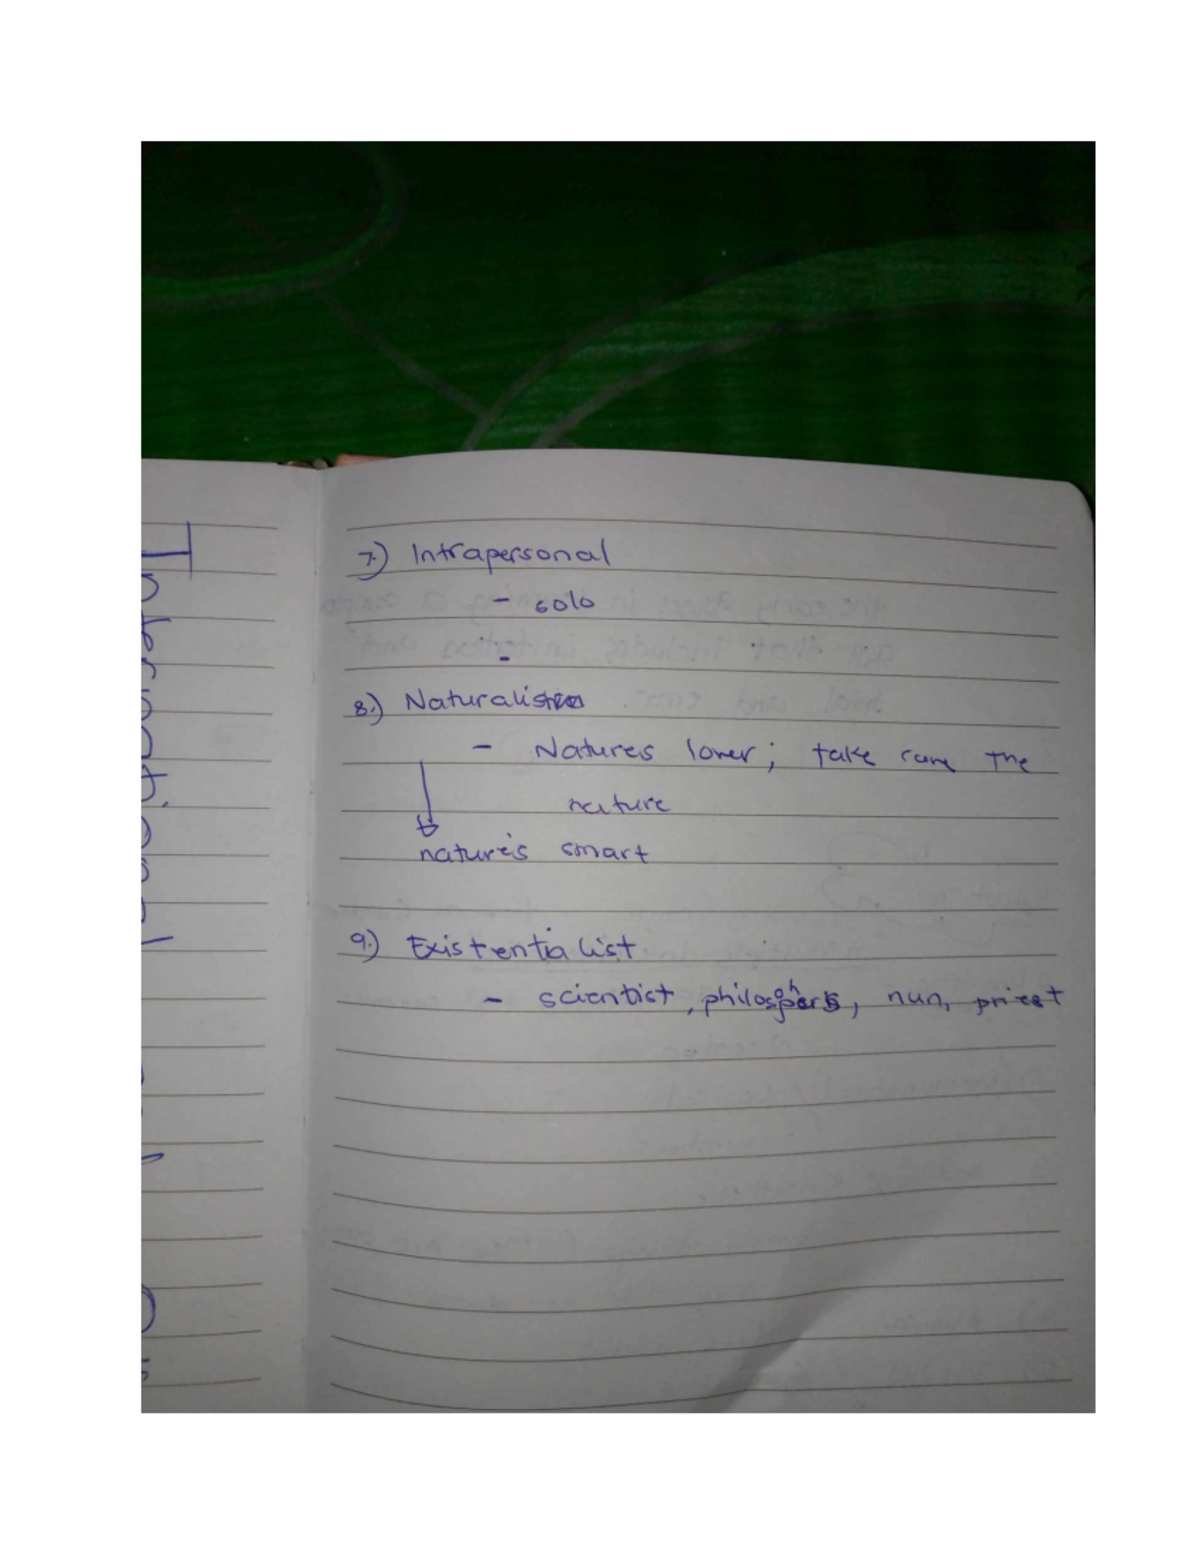 7.) Intrapersonal
- solo
-
8.) Naturalist
- Natures lover; take care the
nature
nature's smart
9.) Existentialist
- scientist, philosophers, nun, priest